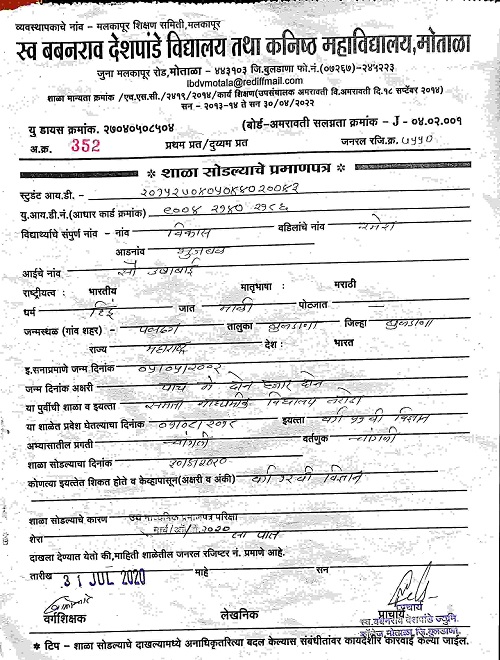 व्यवस्थापकाचे नांव - मलकापूर शिक्षण समिती,मलकापूर
स्व बबनराव देशपांडे विद्यालय तथा कनिष्ठ महाविद्यालय,मोताळा
जुना मलकापूर रोड,मोताळा - ४४३१०३ जि.बुलडाणा फो.नं.(०७२६७)-२४५२२३
lbdvmotala@rediffmail.com
शाळा मान्यता क्रमांक /एच.एस.सी./२४१९/२०१४/कार्य शिक्षण(उपसंचालक अमरावती वि.अमरावती दि.१८ सप्टेंबर २०१४)
सन - २०१३-१४ ते सन ३०/०४/२०२२
यु डायस क्रमांक. २७०४०५०८५०४ (बोर्ड-अमरावती सलग्नता क्रमांक - J - ०४.०२.००१
अ.क्र. 352 प्रथम प्रत/दुय्यम प्रत जनरल रजि.क्र ७५५०
* शाळा सोडल्याचे प्रमाणपत्र *
स्टुडंट आय.डी. -
यु.आय.डी.नं.(आधार कार्ड क्रमांक)
विद्यार्थ्याचे संपुर्ण नांव - नांव विकास वडिलांचे नांव रमेश
आडनांव
आईचे नांव सौ उषाबाई
राष्ट्रीयत्व : भारतीय मातृभाषा : मराठी
धर्म हिंदू जात माळी पोटजात
जन्मस्थळ (गांव शहर) - तालुका बुलडाणा जिल्हा बुलडाणा
राज्य महाराष्ट्र देश : भारत
इ.सनाप्रमाणे जन्म दिनांक ०५/०५/२००२
जन्म दिनांक अक्षरी पाच मे दोन हजार दोन
या पुर्वीची शाळा व इयत्ता माध्यमिक विद्यालय
या शाळेत प्रवेश घेतल्याचा दिनांक ०१/०८/२०१८ इयत्ता वर्ग ११ वी विज्ञान
अभ्यासातील प्रगती चांगली वर्तणुक चांगली
शाळा सोडल्याचा दिनांक
कोणत्या इयत्तेत शिकत होते व केव्हापासून(अक्षरी व अंकी) वर्ग १२ वी विज्ञान
शाळा सोडल्याचे कारण उच्च माध्यमिक प्रमाणपत्र परिक्षा
शेरा 2020 ला पास
दाखला देण्यात येतो की,माहिती शाळेतील जनरल रजिष्टर नं. प्रमाणे आहे.
तारीख 31 JUL 2020 माहे सन
वर्गशिक्षक लेखनिक प्राचार्य
प्राचार्य
स्व.बबनराव देशपांडे ज्युनि.
कॉलेज,मोताळा,जि.बुलडाणा.
* टिप - शाळा सोडल्याचे दाखल्यामध्ये अनाधिकृतरित्या बदल केल्यास संबंधीतांवर कायदेशीर कारवाई केल्या जाईल.